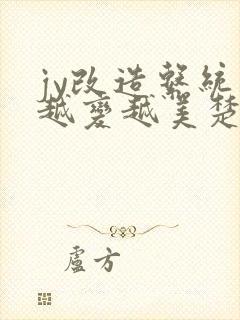 jy改造系統
越變越美楚
盧方